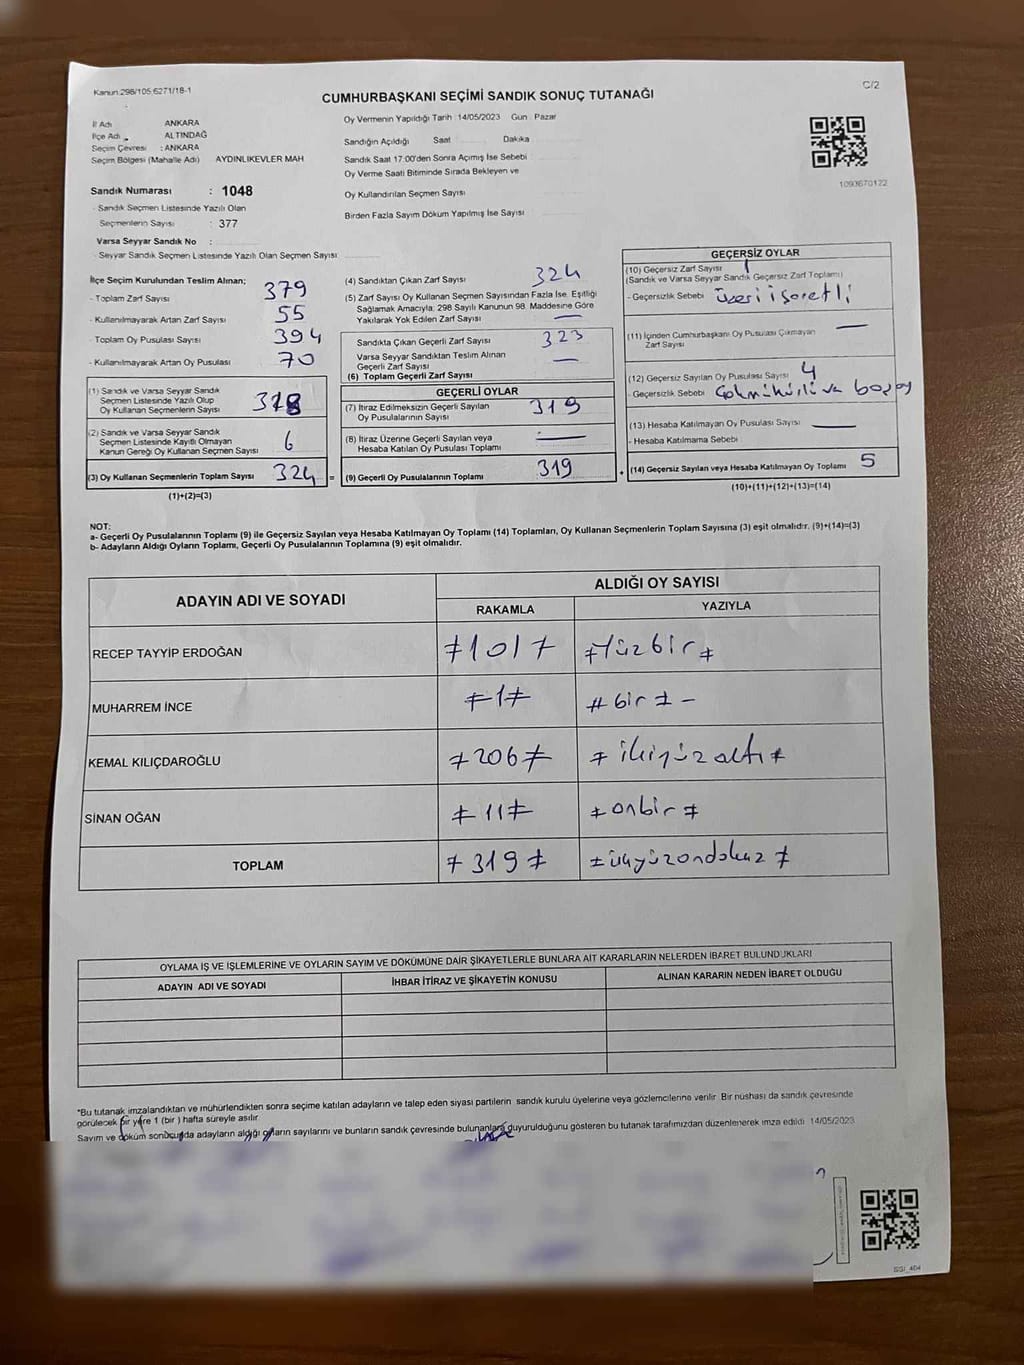 Kanun 298/105 6271/18-1
C/2
CUMHURBAŞKANI SEÇİMİ SANDIK SONUÇ TUTANAĞI
İl Adı ANKARA
İlçe Adı ALTINDAĞ
Seçim Çevresi : ANKARA
Seçim Bölgesi (Mahalle Adı) AYDINLIKEVLER MAH
Sandık Numarası : 1048
- Sandık Seçmen Listesinde Yazılı Olan
Seçmenlerin Sayısı : 377
Varsa Seyyar Sandık No :
- Seyyar Sandık Seçmen Listesinde Yazılı Olan Seçmen Sayısı
Oy Vermenin Yapıldığı Tarih 14/05/2023 Gün Pazar
Sandığın Açıldığı Saat Dakika
Sandık Saat 17:00'den Sonra Açılmış İse Sebebi
Oy Verme Saati Bitiminde Sırada Bekleyen ve
Oy Kullandırılan Seçmen Sayısı
Birden Fazla Sayım Döküm Yapılmış İse Sayısı
1093670122
İlçe Seçim Kurulundan Teslim Alınan;
- Toplam Zarf Sayısı 379
- Kullanılmayarak Artan Zarf Sayısı 55
- Toplam Oy Pusulası Sayısı 394
- Kullanılmayarak Artan Oy Pusulası 70
(1) Sandık ve Varsa Seyyar Sandık
Seçmen Listesinde Yazılı Olup
Oy Kullanan Seçmenlerin Sayısı
(2) Sandık ve Varsa Seyyar Sandık
Seçmen Listesinde Kayıtlı Olmayan
Kanun Gereği Oy Kullanan Seçmen Sayısı 6
(3) Oy Kullanan Seçmenlerin Toplam Sayısı 324 =
(1)+(2)=(3)
(4) Sandıktan Çıkan Zarf Sayısı 324
(5) Zarf Sayısı Oy Kullanan Seçmen Sayısından Fazla İse, Eşitliği
Sağlamak Amacıyla, 298 Sayılı Kanunun 98. Maddesine Göre
Yakılarak Yok Edilen Zarf Sayısı —
Sandıkta Çıkan Geçerli Zarf Sayısı 323
Varsa Seyyar Sandıktan Teslim Alınan
Geçerli Zarf Sayısı —
(6) Toplam Geçerli Zarf Sayısı
GEÇERLİ OYLAR
(7) İtiraz Edilmeksizin Geçerli Sayılan
Oy Pusulalarının Sayısı 319
(8) İtiraz Üzerine Geçerli Sayılan veya
Hesaba Katılan Oy Pusulası Toplamı —
(9) Geçerli Oy Pusulalarının Toplamı 319 +
GEÇERSİZ OYLAR
(10) Geçersiz Zarf Sayısı 1
(Sandık ve Varsa Seyyar Sandık Geçersiz Zarf Toplamı)
- Geçersizlik Sebebi üzeri işaretli
(11) İçinden Cumhurbaşkanı Oy Pusulası Çıkmayan
Zarf Sayısı —
(12) Geçersiz Sayılan Oy Pusulası Sayısı 4
- Geçersizlik Sebebi
(13) Hesaba Katılmayan Oy Pusulası Sayısı —
- Hesaba Katılmama Sebebi
(14) Geçersiz Sayılan veya Hesaba Katılmayan Oy Toplamı 5
(10)+(11)+(12)+(13)=(14)
NOT:
a- Geçerli Oy Pusulalarının Toplamı (9) ile Geçersiz Sayılan veya Hesaba Katılmayan Oy Toplamı (14) Toplamları, Oy Kullanan Seçmenlerin Toplam Sayısına (3) eşit olmalıdır. (9)+(14)=(3)
b- Adayların Aldığı Oyların Toplamı, Geçerli Oy Pusulalarının Toplamına (9) eşit olmalıdır.
ADAYIN ADI VE SOYADI ALDIĞI OY SAYISI
RAKAMLA YAZIYLA
RECEP TAYYİP ERDOĞAN ≠101≠ ≠Yüzbir≠
MUHARREM İNCE ≠1≠ #bir≠ -
KEMAL KILIÇDAROĞLU ≠206≠ ≠ikiyüzaltı≠
SİNAN OĞAN ≠11≠ ≠onbir≠
TOPLAM ≠319≠ ≠üçyüzondokuz≠
OYLAMA İŞ VE İŞLEMLERİNE VE OYLARIN SAYIM VE DÖKÜMÜNE DAİR ŞİKAYETLERLE BUNLARA AİT KARARLARIN NELERDEN İBARET BULUNDUKLARI
ADAYIN ADI VE SOYADI İHBAR İTİRAZ VE ŞİKAYETİN KONUSU ALINAN KARARIN NEDEN İBARET OLDUĞU
*Bu tutanak imzalandıktan ve mühürlendikten sonra seçime katılan adayların ve talep eden siyasi partilerin sandık kurulu üyelerine veya gözlemcilerine verilir. Bir nüshası da sandık çevresinde
görülecek bir yere 1 (bir) hafta süreyle asılır.
Sayım ve döküm sonucunda adayların aldığı oyların sayılarını ve bunların sandık çevresinde bulunanlara duyurulduğunu gösteren bu tutanak tarafımızdan düzenlenerek imza edildi 14/05/2023